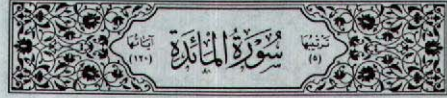 ترتيبها (٥) سُورَةُ المَائِدَة آياتها (١٢٠)